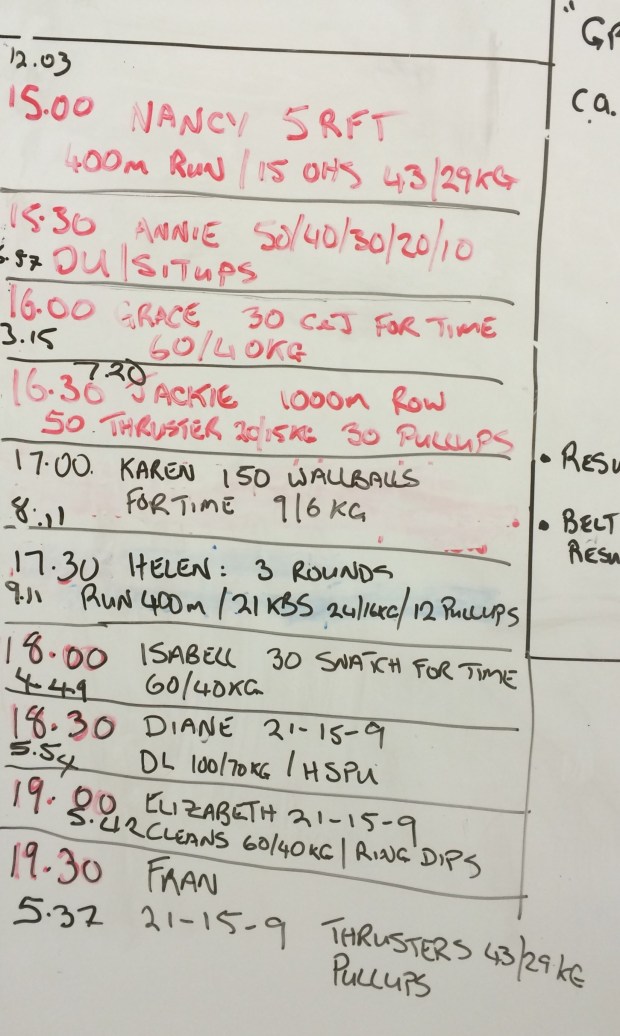 12.03
15.00 NANCY 5 RFT
400m RUN / 15 OHS 43/29KG
15.30 ANNIE 50/40/30/20/10
DU / SITUPS
16.00 GRACE 30 C&J FOR TIME
3.15 60/40KG
7.20
16.30 JACKIE 1000m ROW
50 THRUSTER 20/15KG 30 PULLUPS
17.00. KAREN 150 WALLBALLS
FOR TIME 9/6 KG
8.11
17.30 HELEN: 3 ROUNDS
9.11 RUN 400m / 21 KBS 24/16KG / 12 PULLUPS
18.00 ISABELL 30 SNATCH FOR TIME
4.49 60/40KG
18.30 DIANE 21-15-9
5.54 DL 100/70KG / HSPU
19.00 ELIZABETH 21-15-9
5.42 CLEANS 60/40KG / RING DIPS
19.30 FRAN
5.37 21-15-9 THRUSTERS 43/29KG
PULLUPS
"GP
C.A.
• RESU
• BELT
RESU